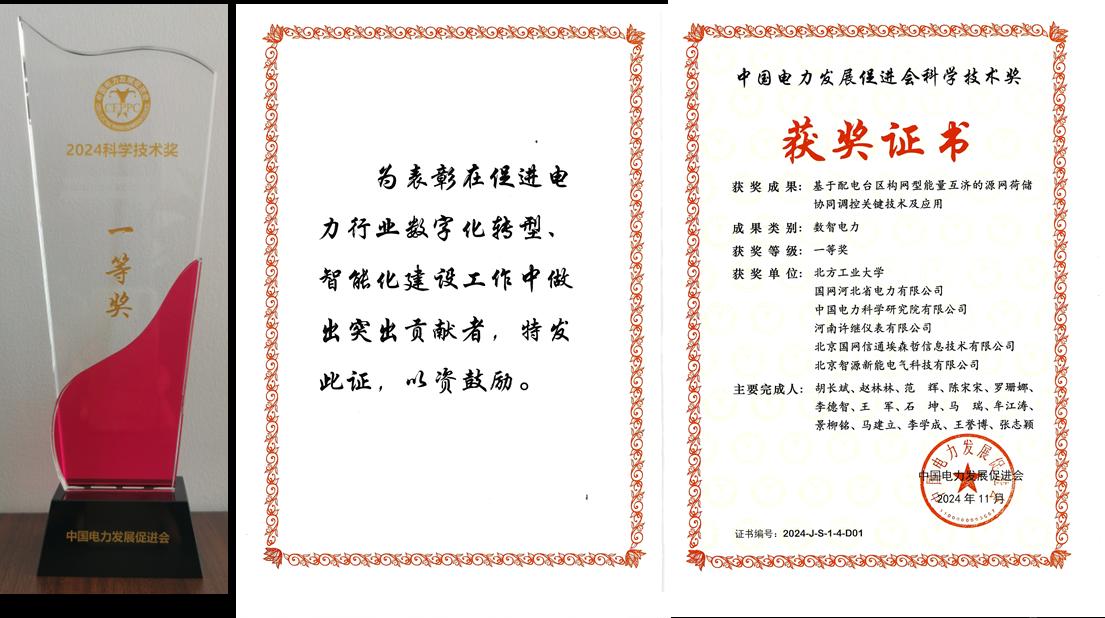 CEPPC
2024科学技术奖
一
等
奖
中国电力发展促进会
为表彰在促进电
力行业数字化转型、
智能化建设工作中做
出突出贡献者，特发
此证，以资鼓励。
中国电力发展促进会科学技术奖
获奖证书
获奖成果：基于配电台区构网型能量互济的源网荷储
协同调控关键技术及应用
成果类别：数智电力
获奖等级：一等奖
获奖单位：北方工业大学
国网河北省电力有限公司
中国电力科学研究院有限公司
河南许继仪表有限公司
北京国网信通埃森哲信息技术有限公司
北京智源新能电气科技有限公司
主要完成人：胡长斌、赵林林、范 辉、陈宋宋、罗珊娜、
李德智、王 军、石 坤、马 瑞、牟江涛、
景柳铭、马建立、李学成、王誉博、张志颖
中国电力发展促进会
2024 年 11 月
证书编号：2024-J-S-1-4-D01